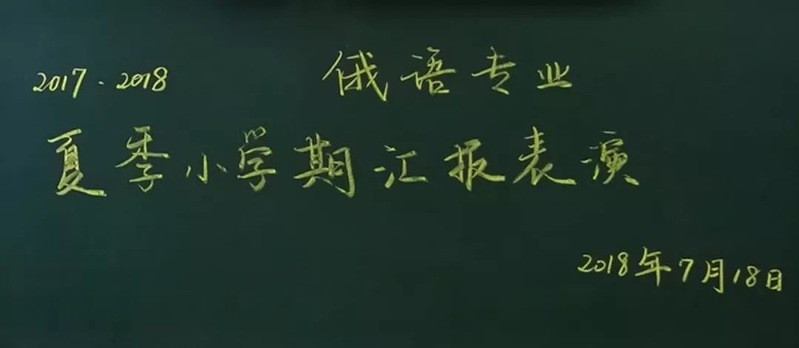 2017-2018 俄语专业
夏季小学期汇报表演
2018年7月18日